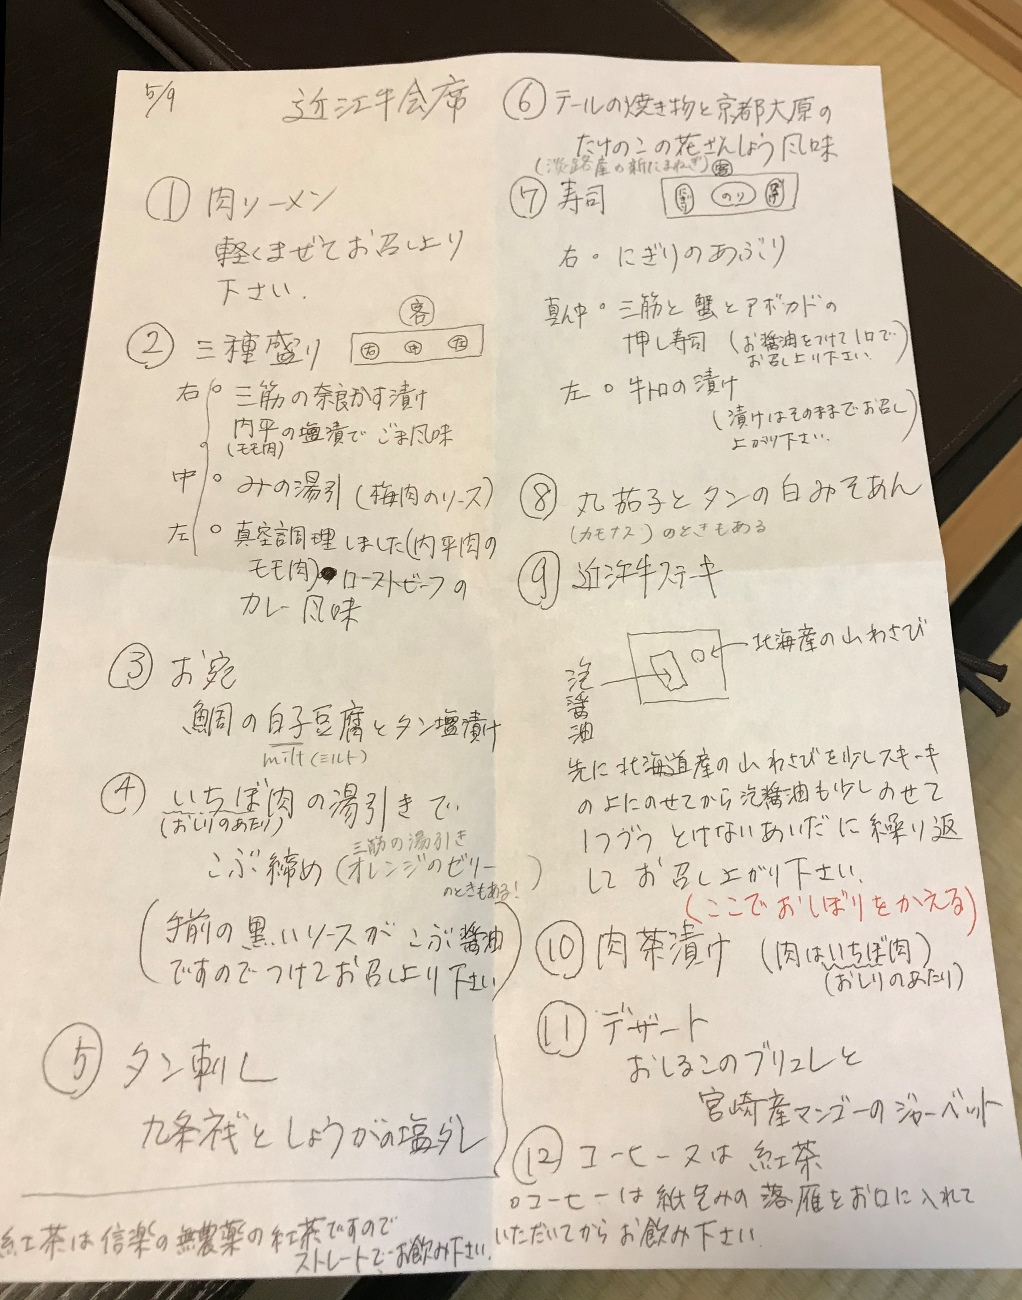 5/9
近江牛会席
① 肉ソーメン
軽くまぜてお召し上り
下さい.
② 三種盛り
客
右 中 左
右 ○ 三筋の奈良かす漬け
内平の塩漬で ごま風味
(モモ肉)
中 ○ みの湯引 (梅肉のソース)
左 ○ 真空調理しました(内平肉の
モモ肉) ローストビーフの
カレー風味
③ お宛
鯛の白子豆腐とタン塩漬け
milt (ミルト)
④ いちぼ肉の湯引きで
(おしりのあたり)
三筋の湯引き
こぶ締め (オレンジのゼリー)
のときもある!
(手前の黒いソースがこぶ醤油
ですのでつけてお召し上り下さい)
⑤ タン刺し
九条ネギとしょうがの塩ダレ
紅茶は信楽の無農薬の紅茶ですので
ストレートでお飲み下さい.
⑥ テールの焼き物と京都大原の
たけのこの花さんしょう風味
(淡路産の新たまねぎ)
客
⑦ 寿司
にぎり のり 漬け
右 ○ にぎりのあぶり
真ん中 ○ 三筋と蟹とアボカドの
押し寿司 (お醤油をつけて1口で
お召し上り下さい.)
左 ○ 牛トロの漬け
(漬けはそのままでお召し
上がり下さい.)
⑧ 丸茄子とタンの白みそあん
(カモナス) のときもある
⑨ 近江牛ステーキ
北海産の山わさび
泡醤油
先に北海道産の山わさびを少しステーキ
の上にのせてから泡醤油も少しのせて
1つづつとけないあいだに繰り返
してお召し上がり下さい.
(ここでおしぼりをかえる)
⑩ 肉茶漬け (肉はいちぼ肉)
(おしりのあたり)
⑪ デザート
おしるこのブリュレと
宮崎産マンゴーのジャーベット
⑫ コーヒー又は紅茶
○コーヒーは紙包みの落雁をお口に入れて
いただいてからお飲み下さい.